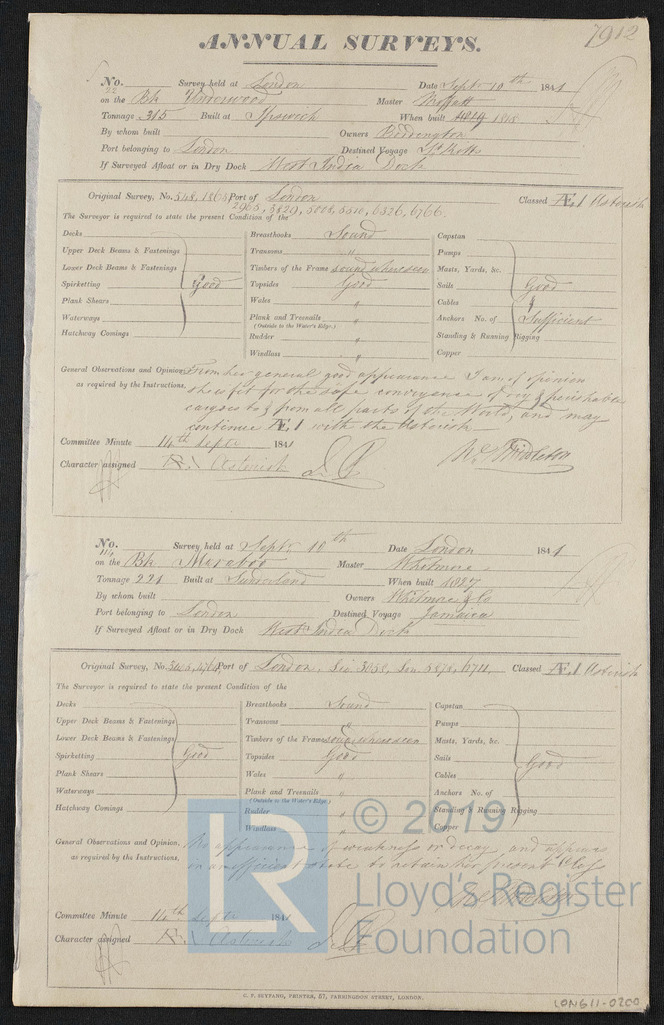 7912
ANNUAL SURVEYS.
No. 22 Survey held at London Date Septr 10th 1841
on the Bk Underwood Master Moffatt
Tonnage 315 Built at Ipswich When built 1819 1818
By whom built Owners Boddington
Port belonging to London Destined Voyage St Kitts
If Surveyed Afloat or in Dry Dock West India Dock
Original Survey, No. 548, 1865 Port of London Classed Æ.1 Asterisk
2965, 3829, 5008, 5510, 6326, 6766.
The Surveyor is required to state the present Condition of the
Decks Breasthooks Sound Capstan
Upper Deck Beams & Fastenings Transoms " Pumps
Lower Deck Beams & Fastenings Timbers of the Frame sound where seen Masts, Yards, &c.
Spirketting Good Topsides Good Sails Good
Plank Shears Wales " Cables &
Waterways Plank and Treenails " Anchors No. of Sufficient
(Outside to the Water's Edge.)
Hatchway Comings Rudder " Standing & Running Rigging
Windlass " Copper
General Observations and Opinion From her general good appearance I am of opinion
as required by the Instructions, she is fit for the safe conveyance of dry & perishable
cargoes to & from all parts of the World, and may
continue Æ.1 with the Asterisk
Committee Minute 14th Septr 1841
Character assigned Æ.1 Asterisk
No. 114 Survey held at Septr 10th Date London 1841
on the Bk Master Whitmore
Tonnage 221 Built at Sunderland When built 1827
By whom built Owners Whitmore & Co
Port belonging to London Destined Voyage Jamaica
If Surveyed Afloat or in Dry Dock West India Dock
Original Survey, No. Port of London, Lon 3058, Lon 5878, 6711, Classed Æ.1 Asterisk
The Surveyor is required to state the present Condition of the
Decks Breasthooks Sound Capstan
Upper Deck Beams & Fastenings Transoms " Pumps
Lower Deck Beams & Fastenings Timbers of the Frame sound where seen Masts, Yards, &c.
Spirketting Good Topsides Good Sails Good
Plank Shears Wales " Cables
Waterways Plank and Treenails " Anchors No. of
(Outside to the Water's Edge.)
Hatchway Comings Rudder " Standing & Running Rigging
Windlass " Copper
General Observations and Opinion, No appearance of weakness or decay and appears
as required by the Instructions, in an efficient state to retain her present Class
Committee Minute 14th Septr 1841
Character assigned Æ.1 Asterisk
LR
© 2019
Lloyd's Register
Foundation
C. F. SEYFANG, PRINTER, 57, FARRINGDON STREET, LONDON.
LON611-0200